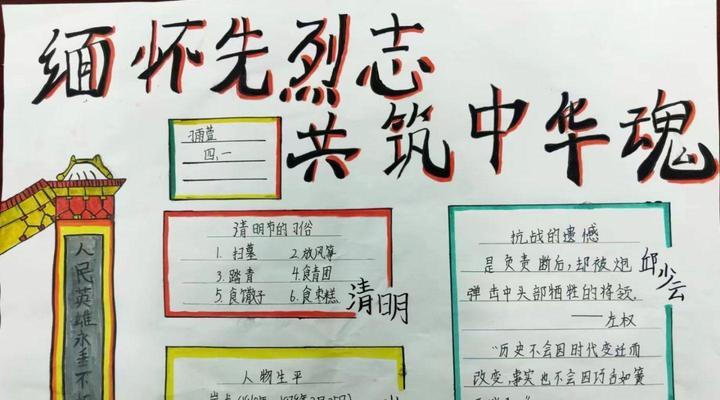 缅怀先烈志
共筑中华魂
四、一
人民英雄永垂不
清明节的习俗
1. 扫墓 2. 放风筝
3. 踏青 4. 食青团
5. 食馓子 6. 食枣糕
清明
抗战的遗憾
是负责断后,却被炮
弹击中头部牺牲的将领.
——左权
邱少云
"历史不会因时代变迁而
改变,事实也不会因巧舌如簧
人物生平